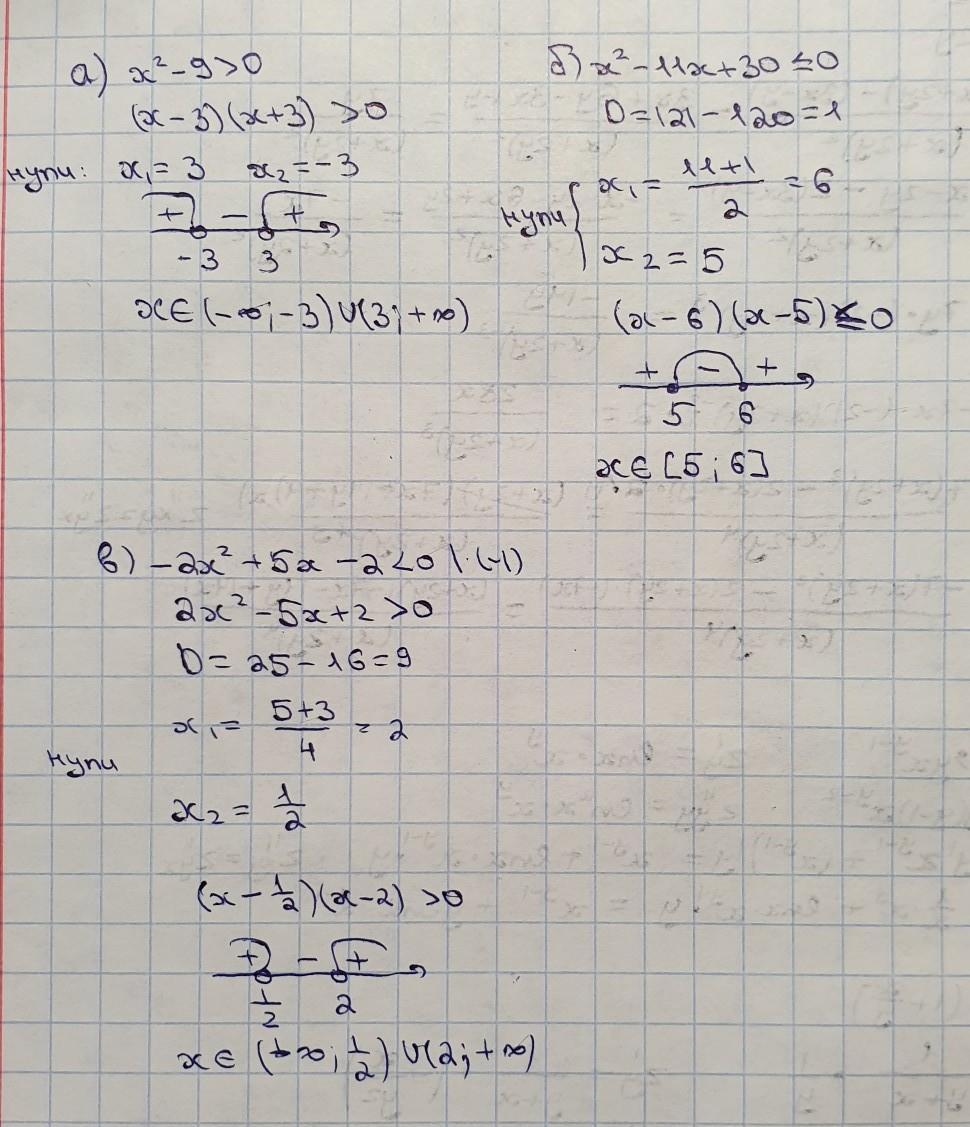 а) x² - 9 > 0
(x - 3)(x + 3) > 0
нули: x₁ = 3 x₂ = -3
+ - +
-3 3
x ∈ (-∞; -3) ∪ (3; +∞)
б) x² - 11x + 30 ≤ 0
D = 121 - 120 = 1
нули { x₁ = (11+1)/2 = 6
x₂ = 5
(x - 6)(x - 5) ≤ 0
+ - +
5 6
x ∈ [5; 6]
в) -2x² + 5x - 2 < 0 | · (-1)
2x² - 5x + 2 > 0
D = 25 - 16 = 9
x₁ = (5+3)/4 = 2
нули
x₂ = 1/2
(x - 1/2)(x - 2) > 0
+ - +
1/2 2
x ∈ (-∞; 1/2) ∪ (2; +∞)